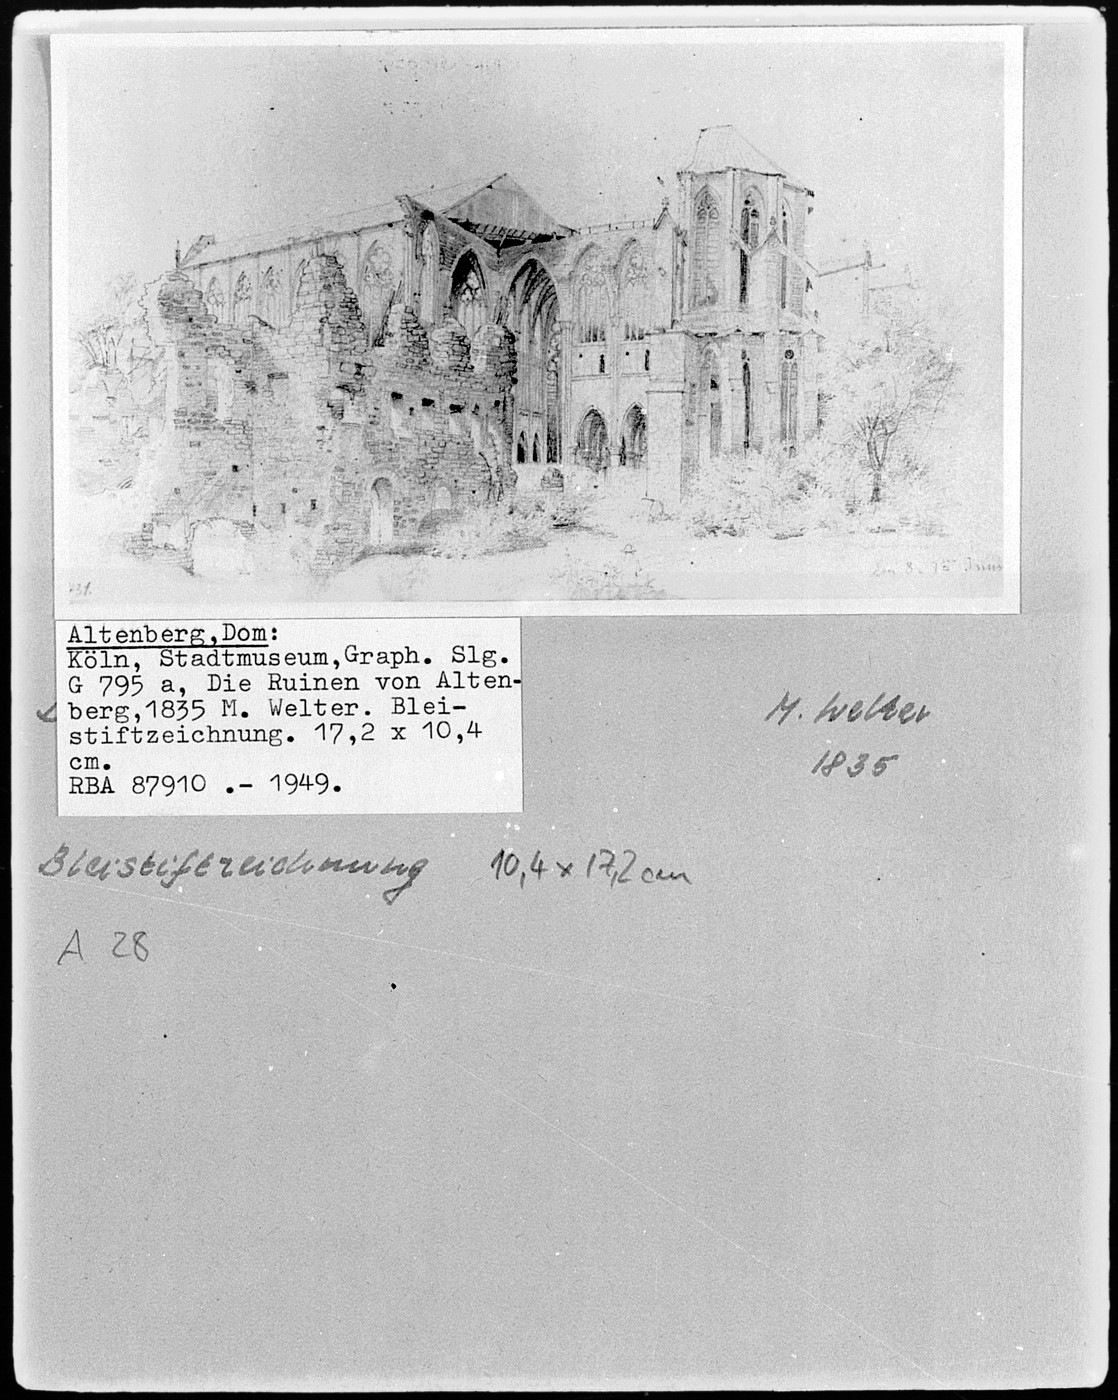 31.
Altenberg,Dom:
Köln, Stadtmuseum,Graph. Slg.
G 795 a, Die Ruinen von Alten-
berg,1835 M. Welter. Blei-
stiftzeichnung. 17,2 x 10,4
cm.
RBA 87910 .- 1949.
M. Welter
1835
Bleistiftzeichnung 10,4 x 17,2 cm
A 28